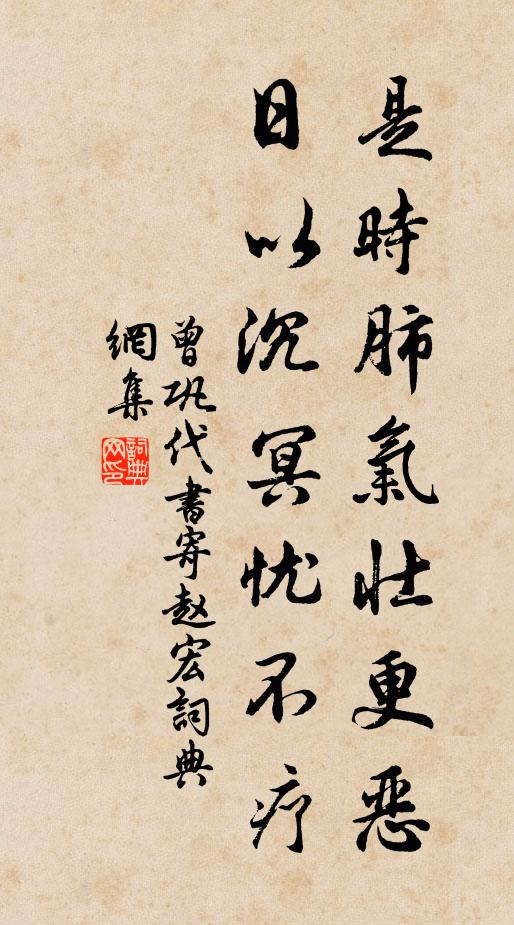 是時肺氣壯更惡
日以沉冥忧不疗
曾巩代書寄赵宏詞典
網集
詞典
网印